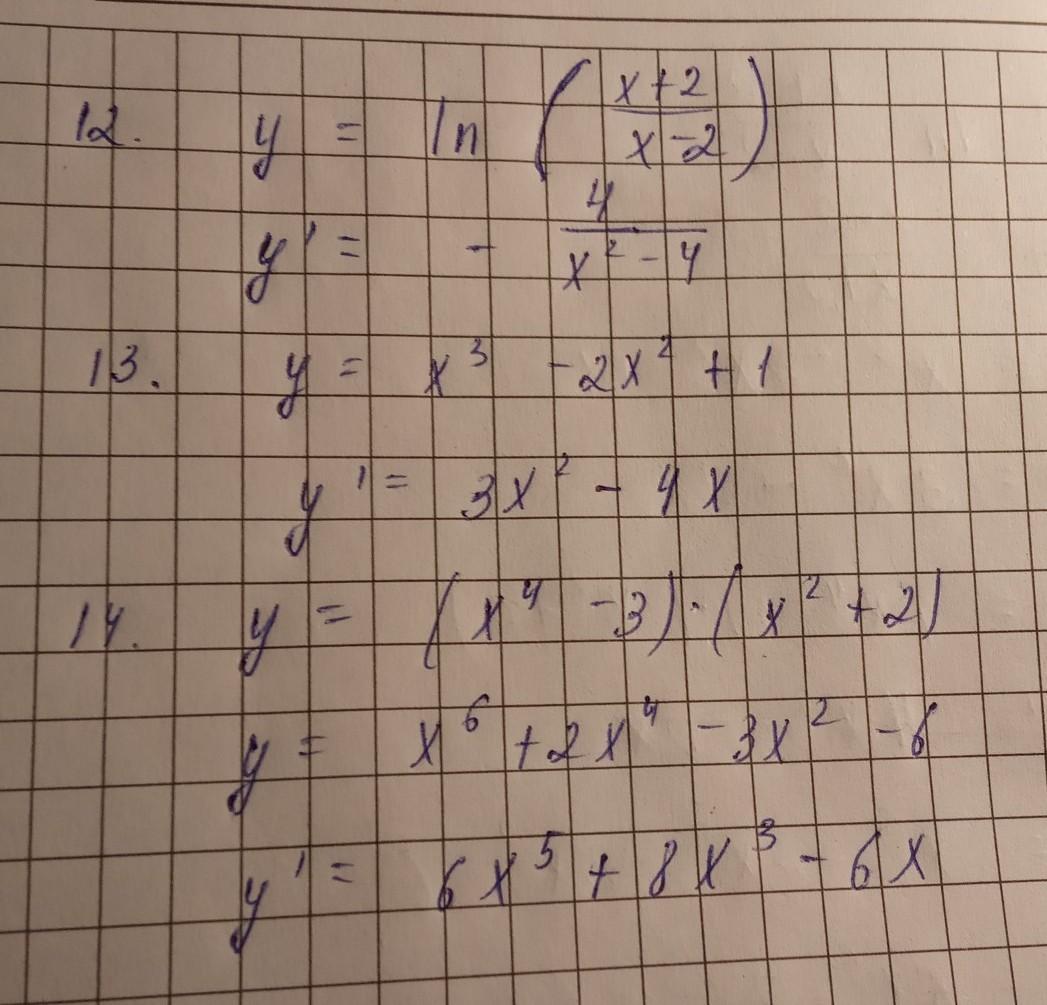 12. y = ln ( (x+2)/(x-2) )
y' = - 4/(x² - 4)
13. y = x³ - 2x² + 1
y' = 3x² - 4x
14. y = (x⁴ - 3) · (x² + 2)
y = x⁶ + 2x⁴ - 3x² - 6
y' = 6x⁵ + 8x³ - 6x